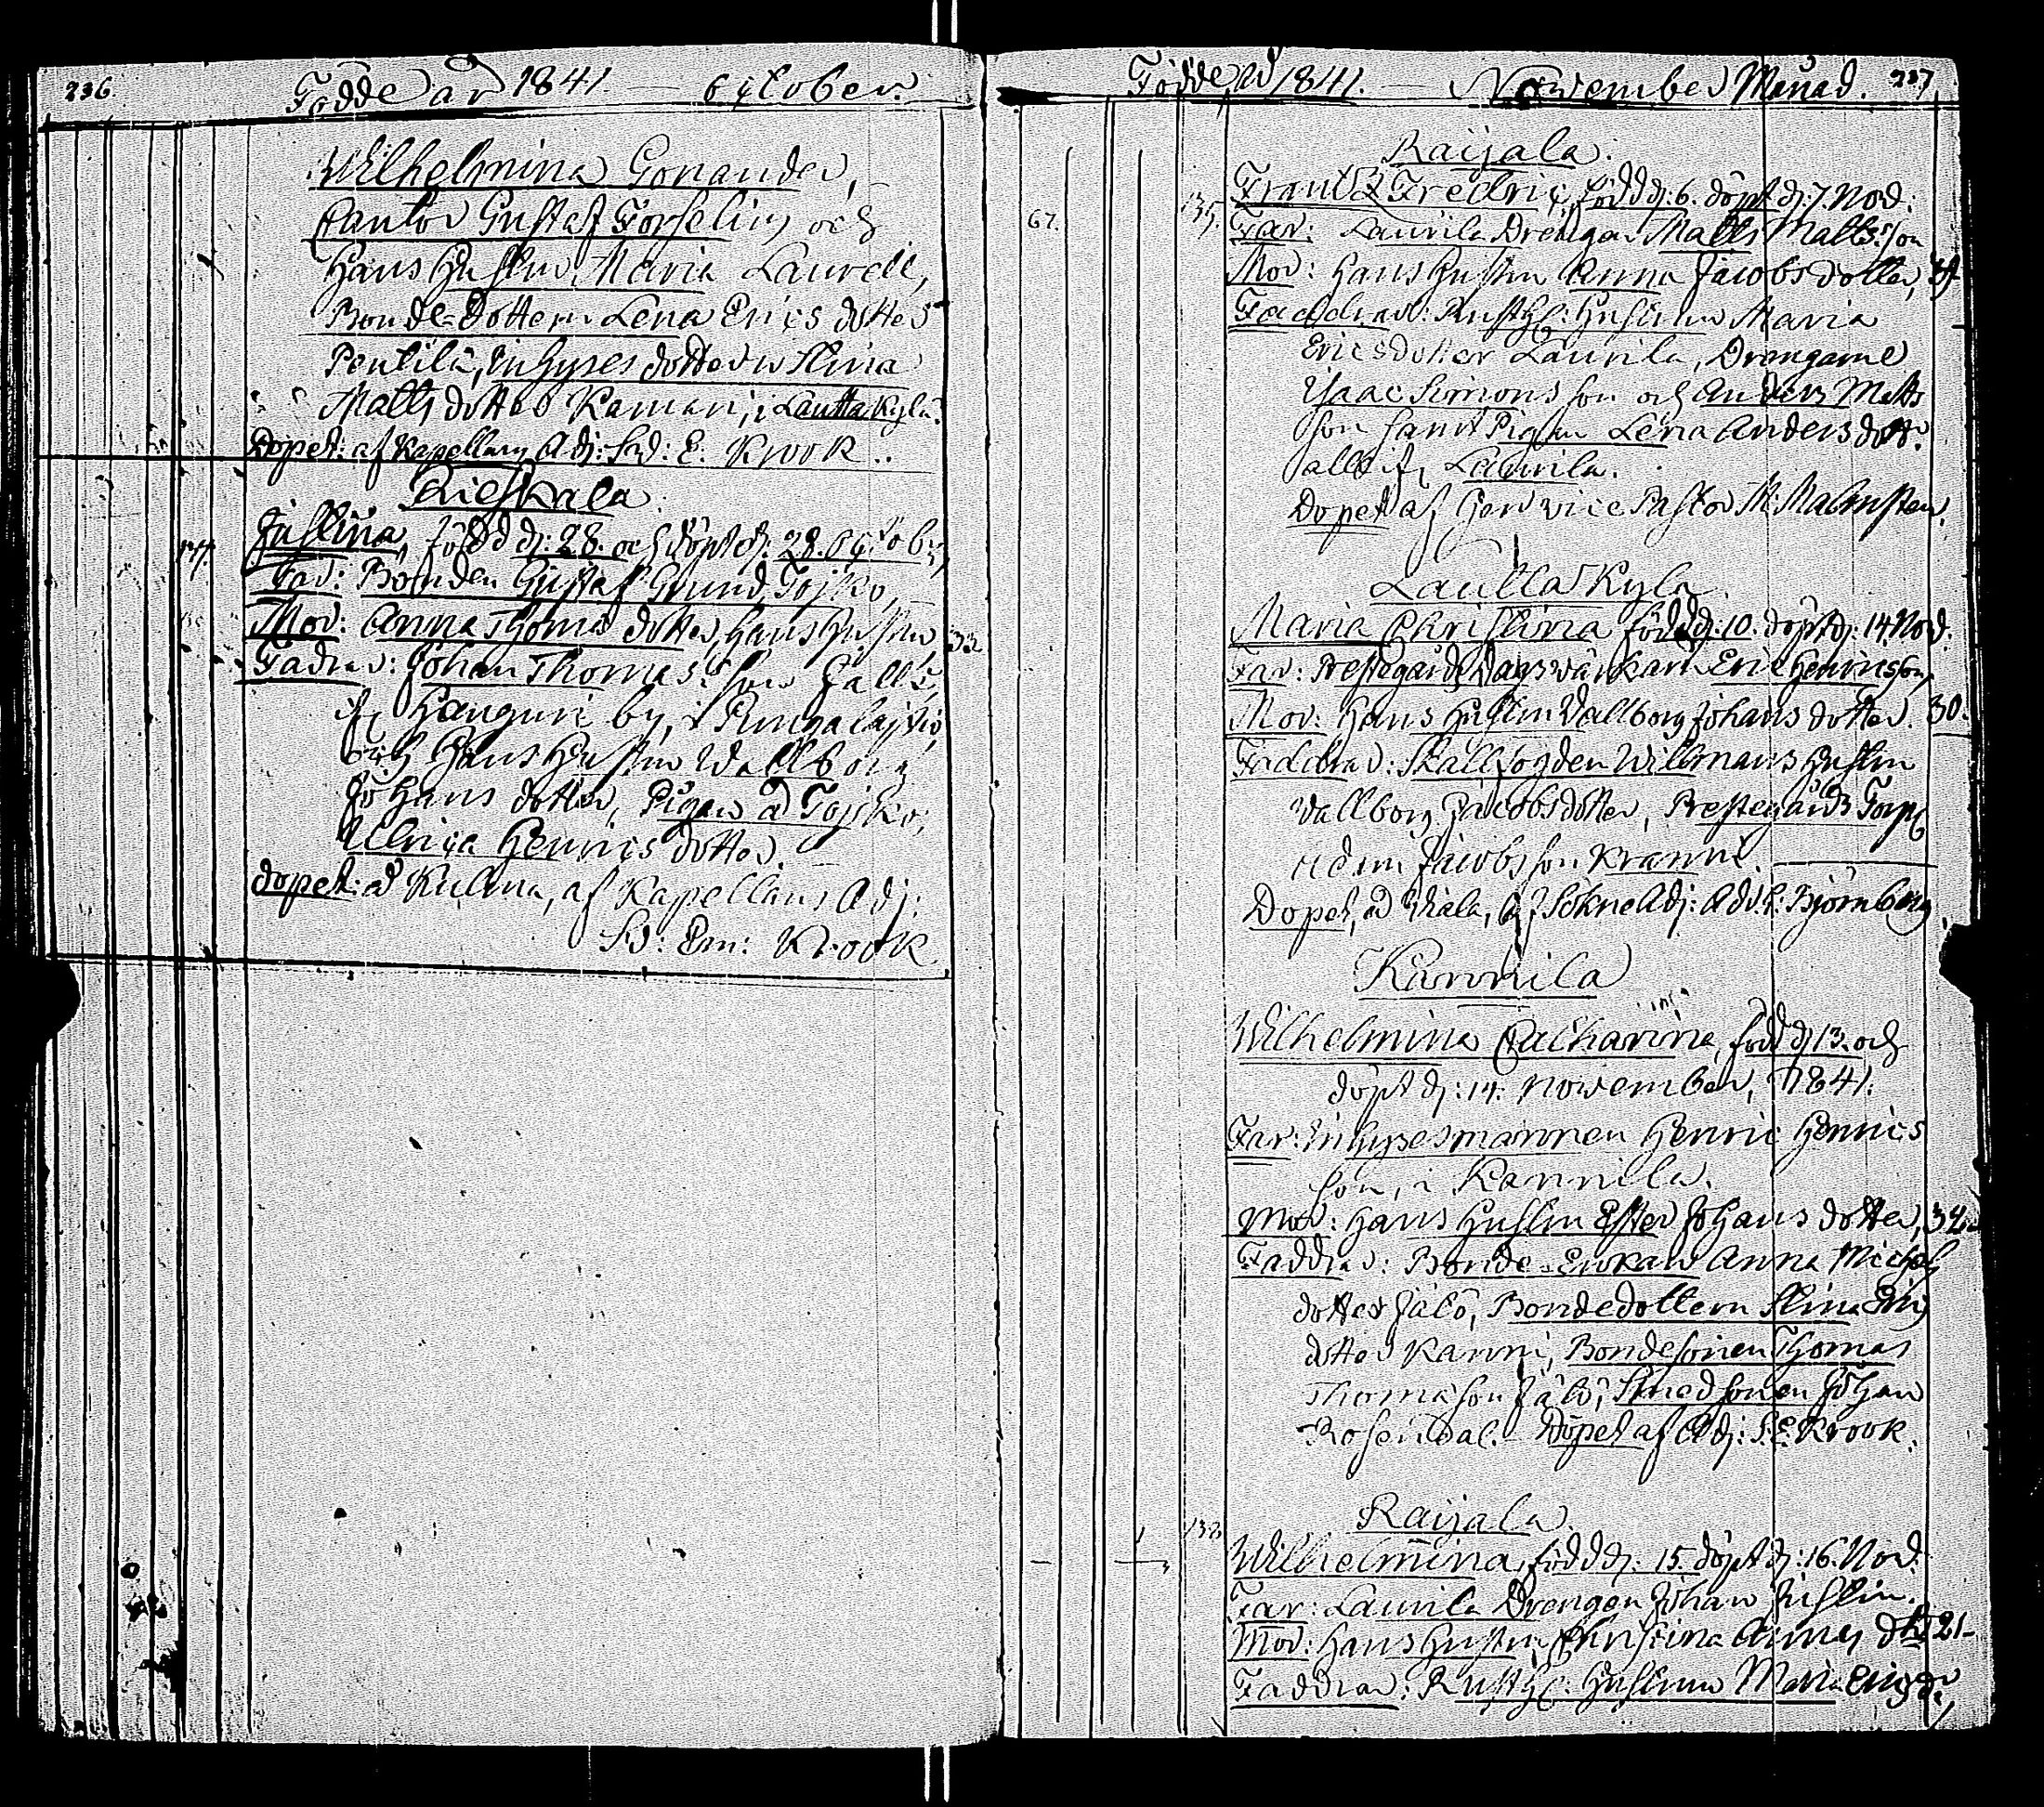 236.
Födde år 1841. — October.
Wilhelmina Gonander,
Cantor Gustaf Forselius och
Hans Hustru Maria Laurell,
Bonde-Dottern Lena Erics dotter
Pentilä, Inhyses dottern Stina
Matts dotter Kamari, i Lauttakylä.
Dopet: af Kapellans Adj: Sd: E. Krook.
Rieskala
Justina, född d: 28. och döpt d: 28. October,
Far: Bonden Gustaf Grund Tojko,
Mor: Anna Thomas dotter, Hans Hustru 33
Fadrar: Johan Thomas son
by, i Punga
och Hans Hustru Wallborg
Johans dotter, Pigan å Tojko,
Ulrica Henrics dotter.
Dopet: å Kulma, af Kapellans Adj.
Sd: Em: Krook
Födde år 1841. — November Månad. 237
Raijala.
67. 135. Frantz Fredric, född d: 6. döpt d: 7. Nov:
Far: Laurila Drengen Matts Matts son
Mor: Hans Hustru Anna Jacobs dotter,
Faddrar: Rusth: Hustrun Maria
Ericsdotter Laurila, Drengarne
Isaac Simons son och Anders Matts
son samt Pigan Lena Anders dott.
alla ifr Laurila.
Dopet af Herr vice Pastor M. Malmsten.
Lautta Kylä
Maria Christina född d: 10. döpt d: 14 Nov.
Far: Prestegårds Dagsvärkarn Eric Henricsson,
Mor: Hans Hustru Wallborg Johans dotter. 30.
Faddrar: Stallfogden Willmans Hustru
Wallborg Jacobsdotter, Prestegårds Torp
Adam Jacobsson Kranni.
Dopet, af Sokne Adj: Björnberg
Kannila
Wilhelmina Catharina, född d 13. och
döpt d: 14. November, 1841.
Far: Inhysesmannen Henric Henrics
son, i Kannila.
Mor: Hans Hustru Ester Johans dotter, 34.
Faddrar: Bonde-Enkan Anna Michels
dotter Jäbö, Bondedottern Stina Erics
dotter Kanni, Bondesonen Thomas
Thomasson Jäbö, Smedsonen Johan
Rosendal. Dopet af Adj: S. E. Krook.
Raijala
138 Wilhelmina, född d: 15. döpt d: 16. Nov.
Far: Laurila Drengen Johan Justin.
Mor: Hans Hustru Christina 21.
Faddrar: Rusth: Hustrun Maria Erics dr,